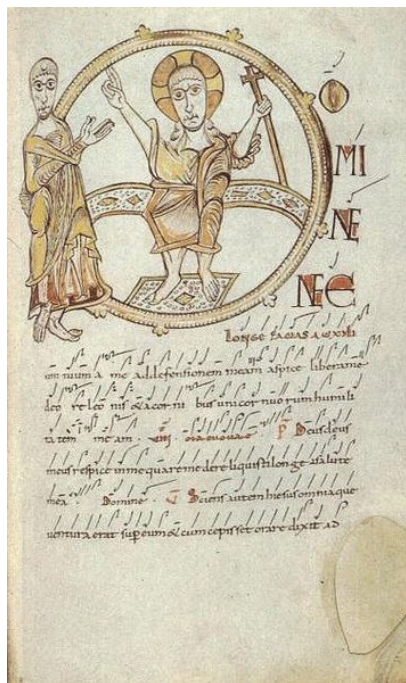 O
MI
NE
NE
longe facias auxili
um tuum a me ad defensionem meam aspice libera me
deo re leo nis & a cor ni bus uni cor nuo rum humili
ta tem me am . P Deus deus
meus respice in me quare me dere liquisti longe a salute
mea . Domine . V Sciens autem hiesus omnia que
ventura erat sup eum & cum cepisset orare dixit ad